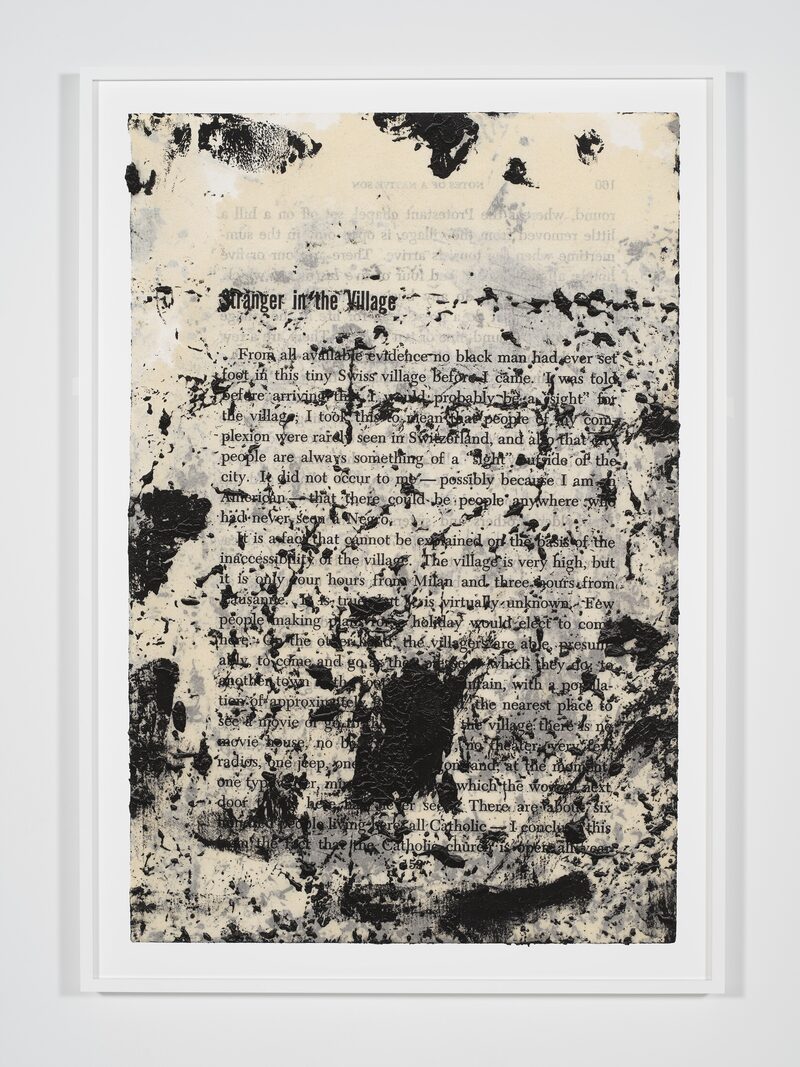 160 NOTES OF A NATIVE SON
round, where the Protestant chapel, set off on a hill a
little removed from the village, is open in the sum-
mertime when the arrive. There are four or five
Stranger in the Village
From all available evidence no black man had ever set
foot in this tiny Swiss village before I came. I was told
before arriving that I would probably be a "sight" for
the village; I took this to mean that people of my com-
plexion were rarely seen in Switzerland, and also that city
people are always something of a "sight" outside of the
city. It did not occur to me — possibly because I am an
American — that there could be people anywhere who
had never seen a Negro.
It is a fact that cannot be explained on the basis of the
inaccessibility of the village. The village is very high, but
it is only four hours from Milan and three hours from
Lausanne. It is true that it is virtually unknown. Few
people making plans for a holiday would elect to come
here. On the other hand, the villagers are able, presum-
ably, to come and go as they please — which they do: to
another town at the foot with a popula-
tion of approximately the nearest place to
see a movie or go the village there is no
movie house, no no theater; very few
radios, one jeep, one and, at the moment,
one which the woman next
door here had never seen. There are about six
people living here, all Catholic — I conclude this
from the fact that the Catholic church is open all year
159